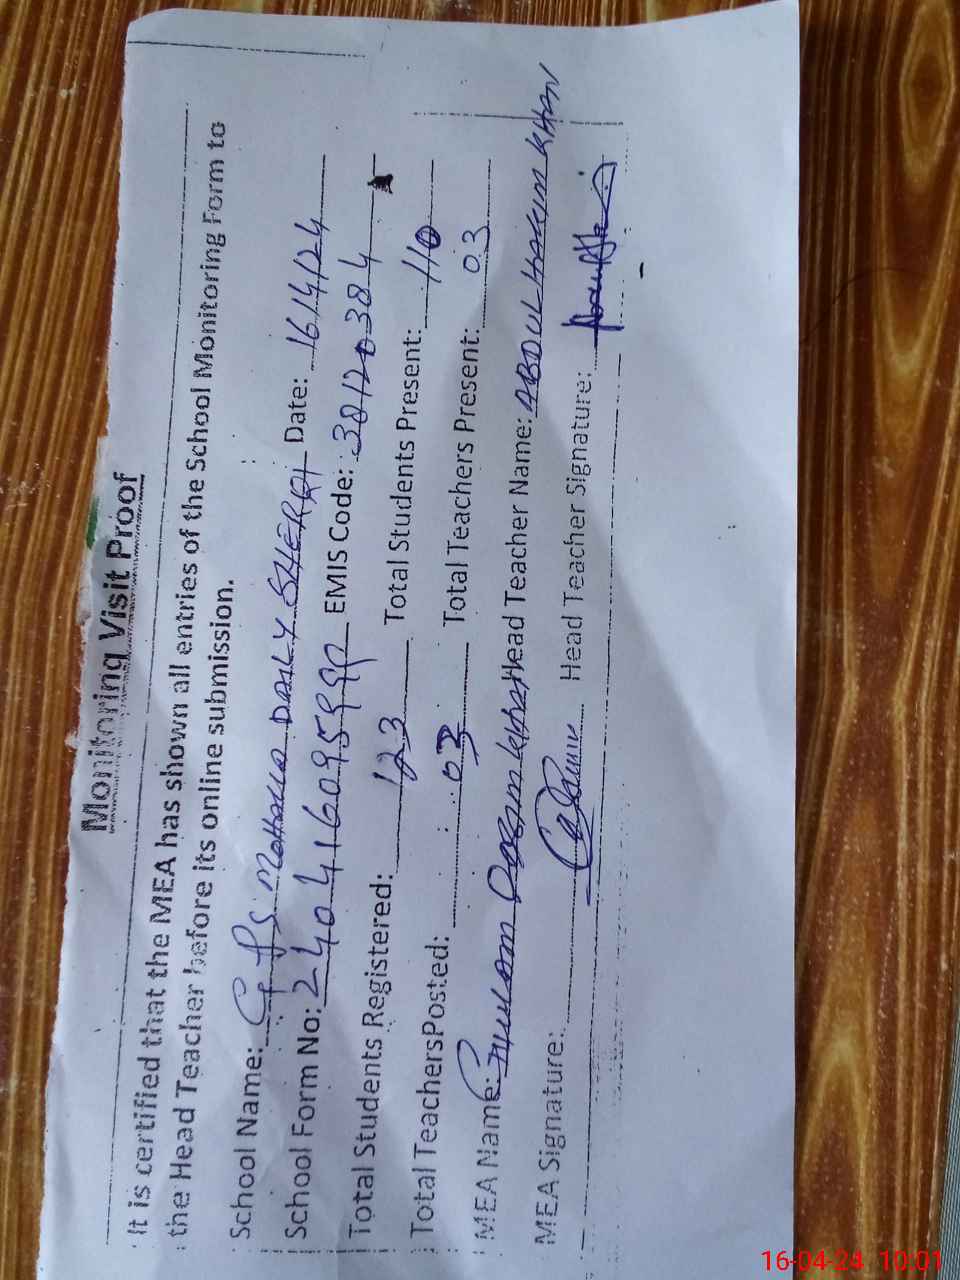 Monitoring Visit Proof
It is certified that the MEA has shown all entries of the School Monitoring Form to
the Head Teacher before its online submission.
School Name: GPS Date: 16/4/24
School Form No: EMIS Code:
Total Students Registered: 123 Total Students Present: 110
Total TeachersPosted: 03 Total Teachers Present: 03
MEA Name: Head Teacher Name: ABDUL HAKIM KHAN
MEA Signature: Head Teacher Signature:
16-04-24 10:01